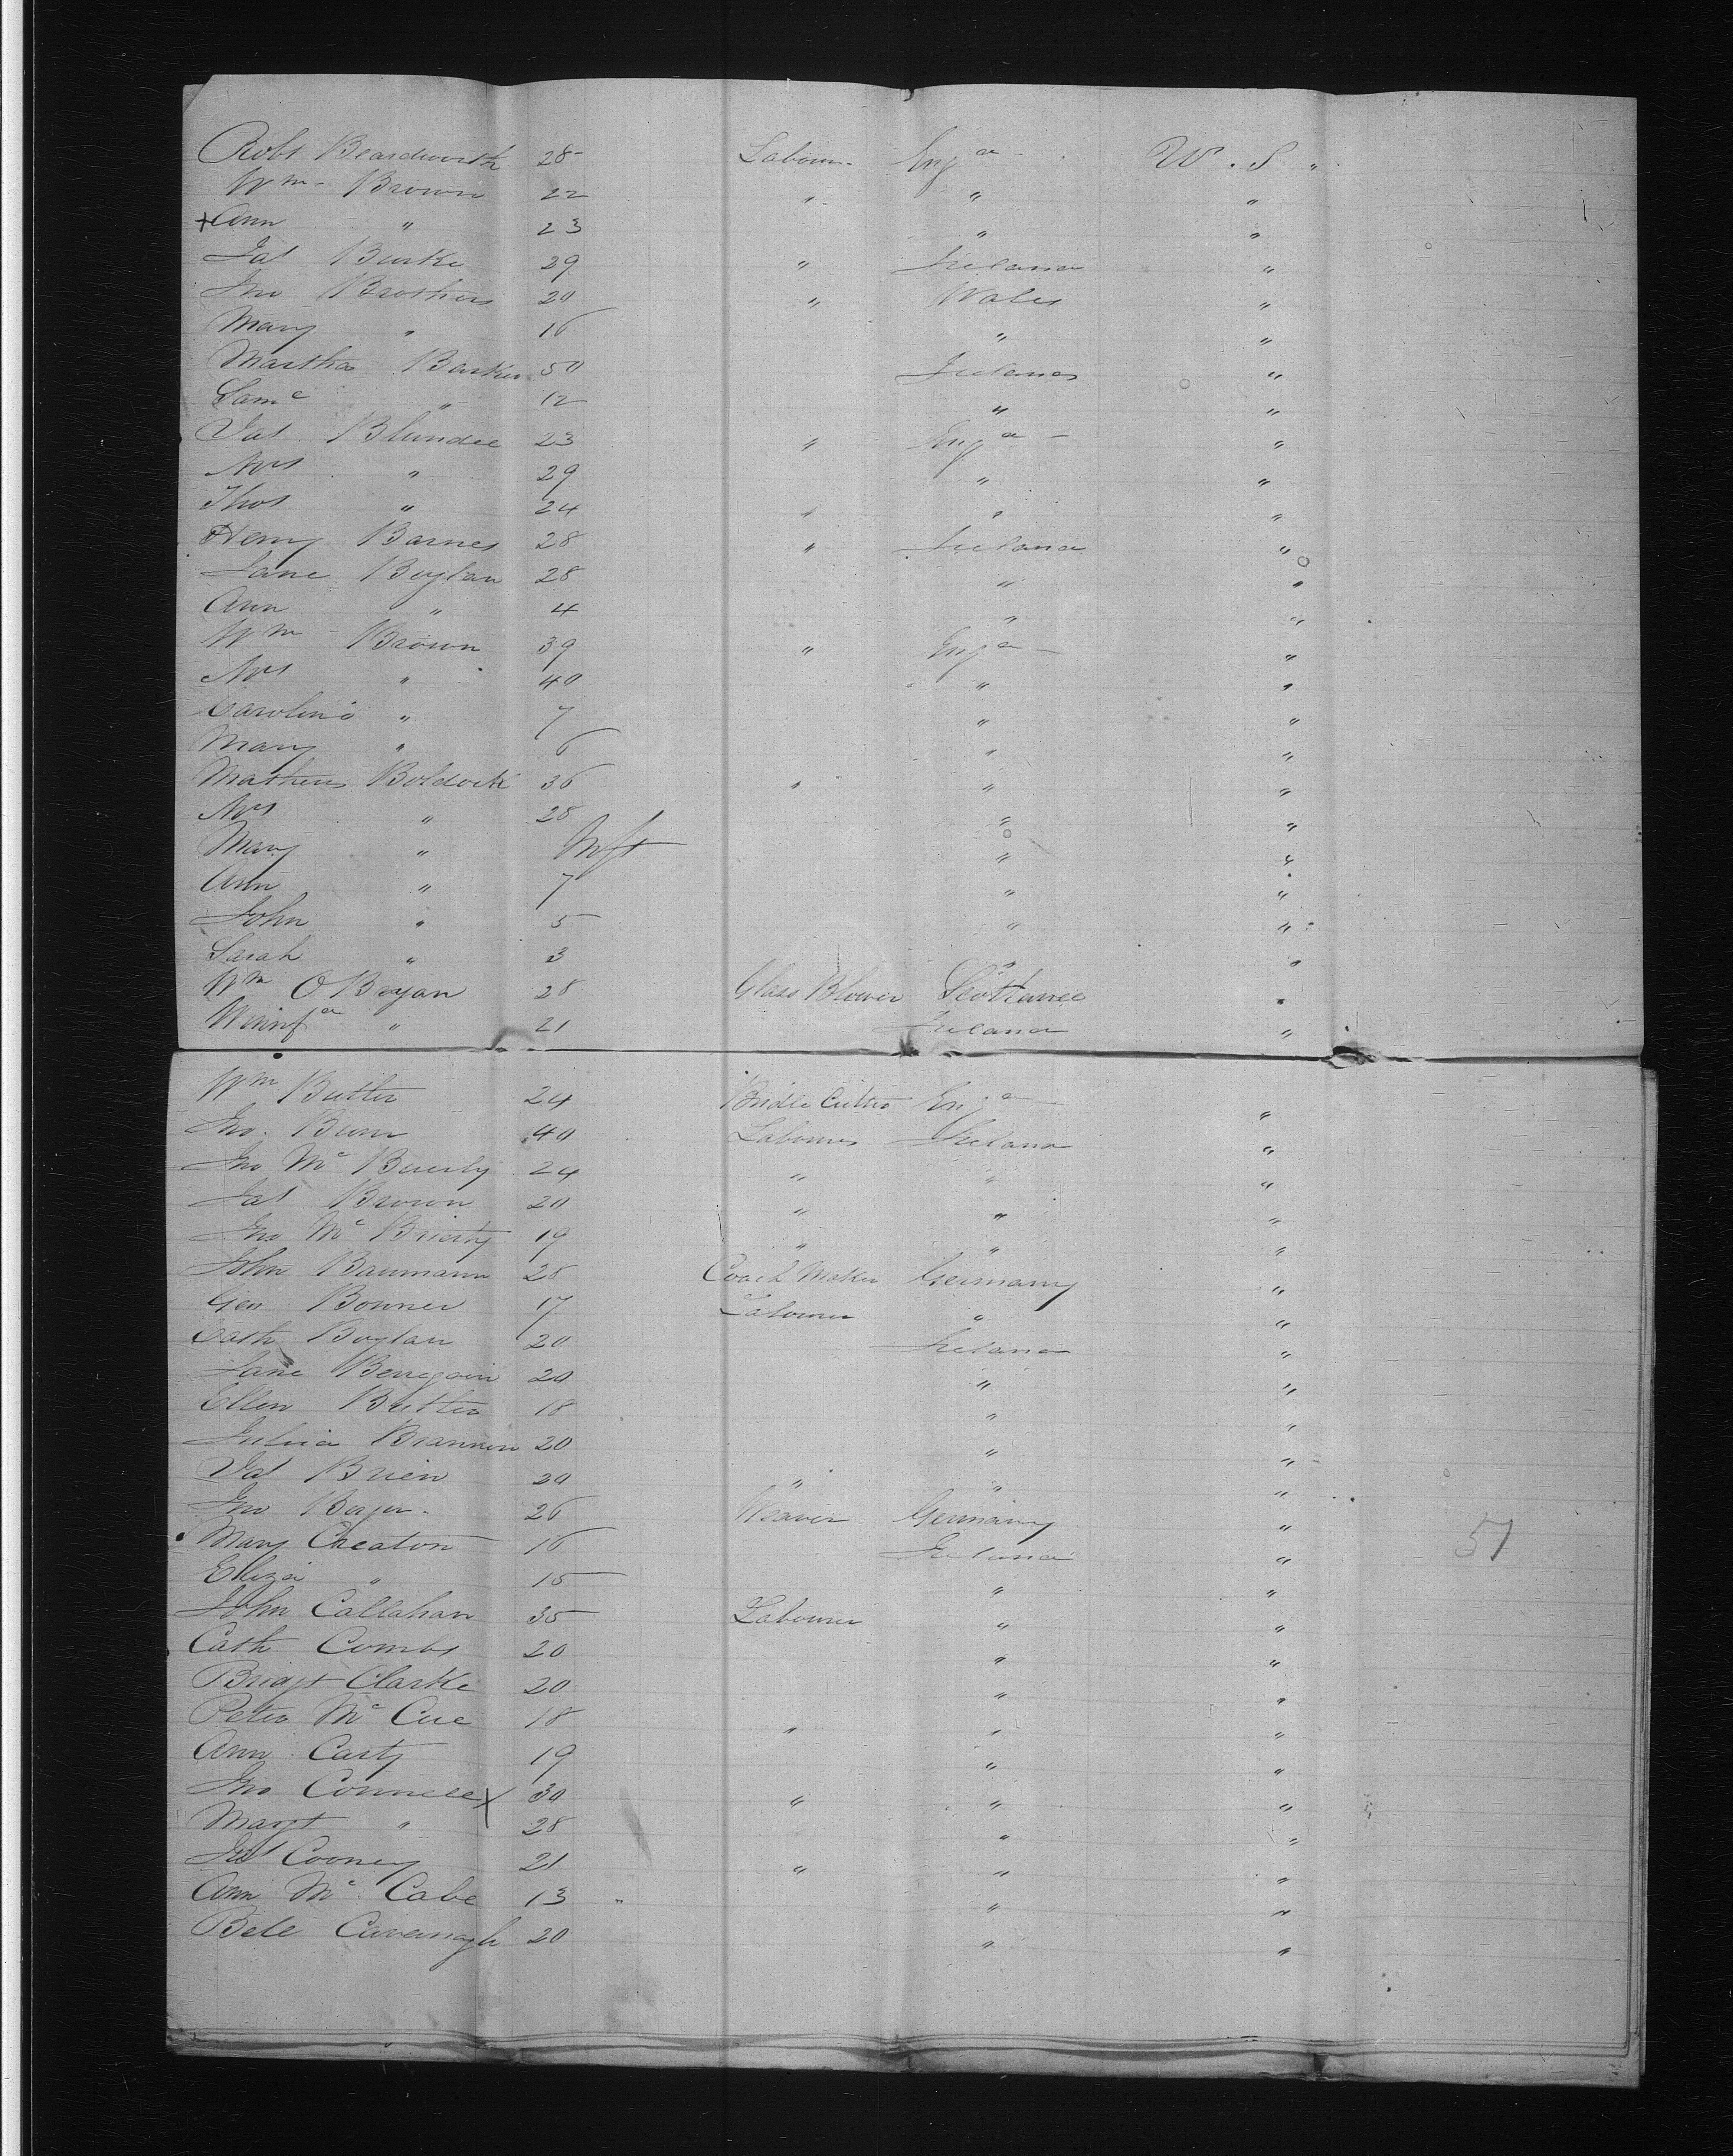 Robt Beardworth 28 Labour Engd W. S.
Wm Brown 22 " " "
+ Ann " 23 " "
Jas Burke 29 " Ireland "
Jno Brothers 20 " Wales "
Mary " 16 " "
Martha Barker 50 Ireland "
Saml " 12 " "
Jas Blundell 23 " Engd "
Mrs " 29 " "
Thos " 24 " " "
Henry Barnes 28 " Ireland "
Jane Boylan 28 " "
Ann " 4 " "
Wm Brown 39 " Engd "
Mrs " 40 " "
Caroline " 7 " "
Mary " 6 " "
Mathew Boldock 36 " " "
Mrs " 28 " "
Mary " Inft " "
Ann " 7 " "
John " 5 " "
Sarah " 3 " "
Wm O Bryan 28 Glass Blower Scotland "
Wininfd " 21 Ireland "
Wm Butler 24 Bridle Cutter Engd "
Jno. Burn 40 Labourer Ireland "
Jno Mc 24 " " "
Jas Brown 20 " " "
Jno Mc Brierty 19 " " "
John Baumann 28 Coach Maker Germany "
Geo Bonner 17 Labourer " "
Cath Boylan 20 Ireland "
Jane 20 " "
Ellen Butler 18 " "
Julia Brannon 20 " "
Jas Brien 20 " " "
Jno Berger 26 Weaver Germany "
Mary Cheaton 16 Ireland "
Eliza " 15 " "
John Callahan 35 Labourer " "
Cath Combs 20 " "
Bridgt Clarke 20 " "
Peter Mc Cue 18 " " "
Ann Carty 19 " "
Jno Connell X 30 " " "
Margt " 28 " "
Jas Cooney 21 " " "
Ann Mc Cabe 13 " "
Bell Cavanagh 20 " "
51